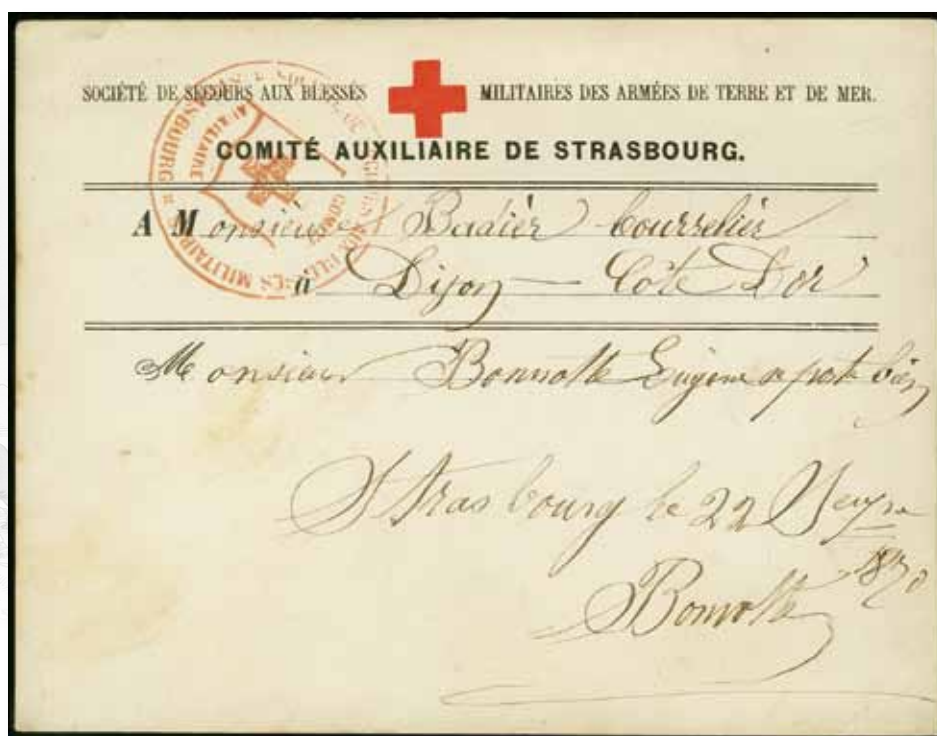 SOCIÉTÉ DE SECOURS AUX BLESSÉS MILITAIRES DES ARMÉES DE TERRE ET DE MER.
COMITÉ AUXILIAIRE DE STRASBOURG.
A Monsieur Badier bourrelier
à Dijon — Côte D'or
Monsieur Bonnotte Eugène se porte bien
Strasbourg le 22
1870
Bonnotte